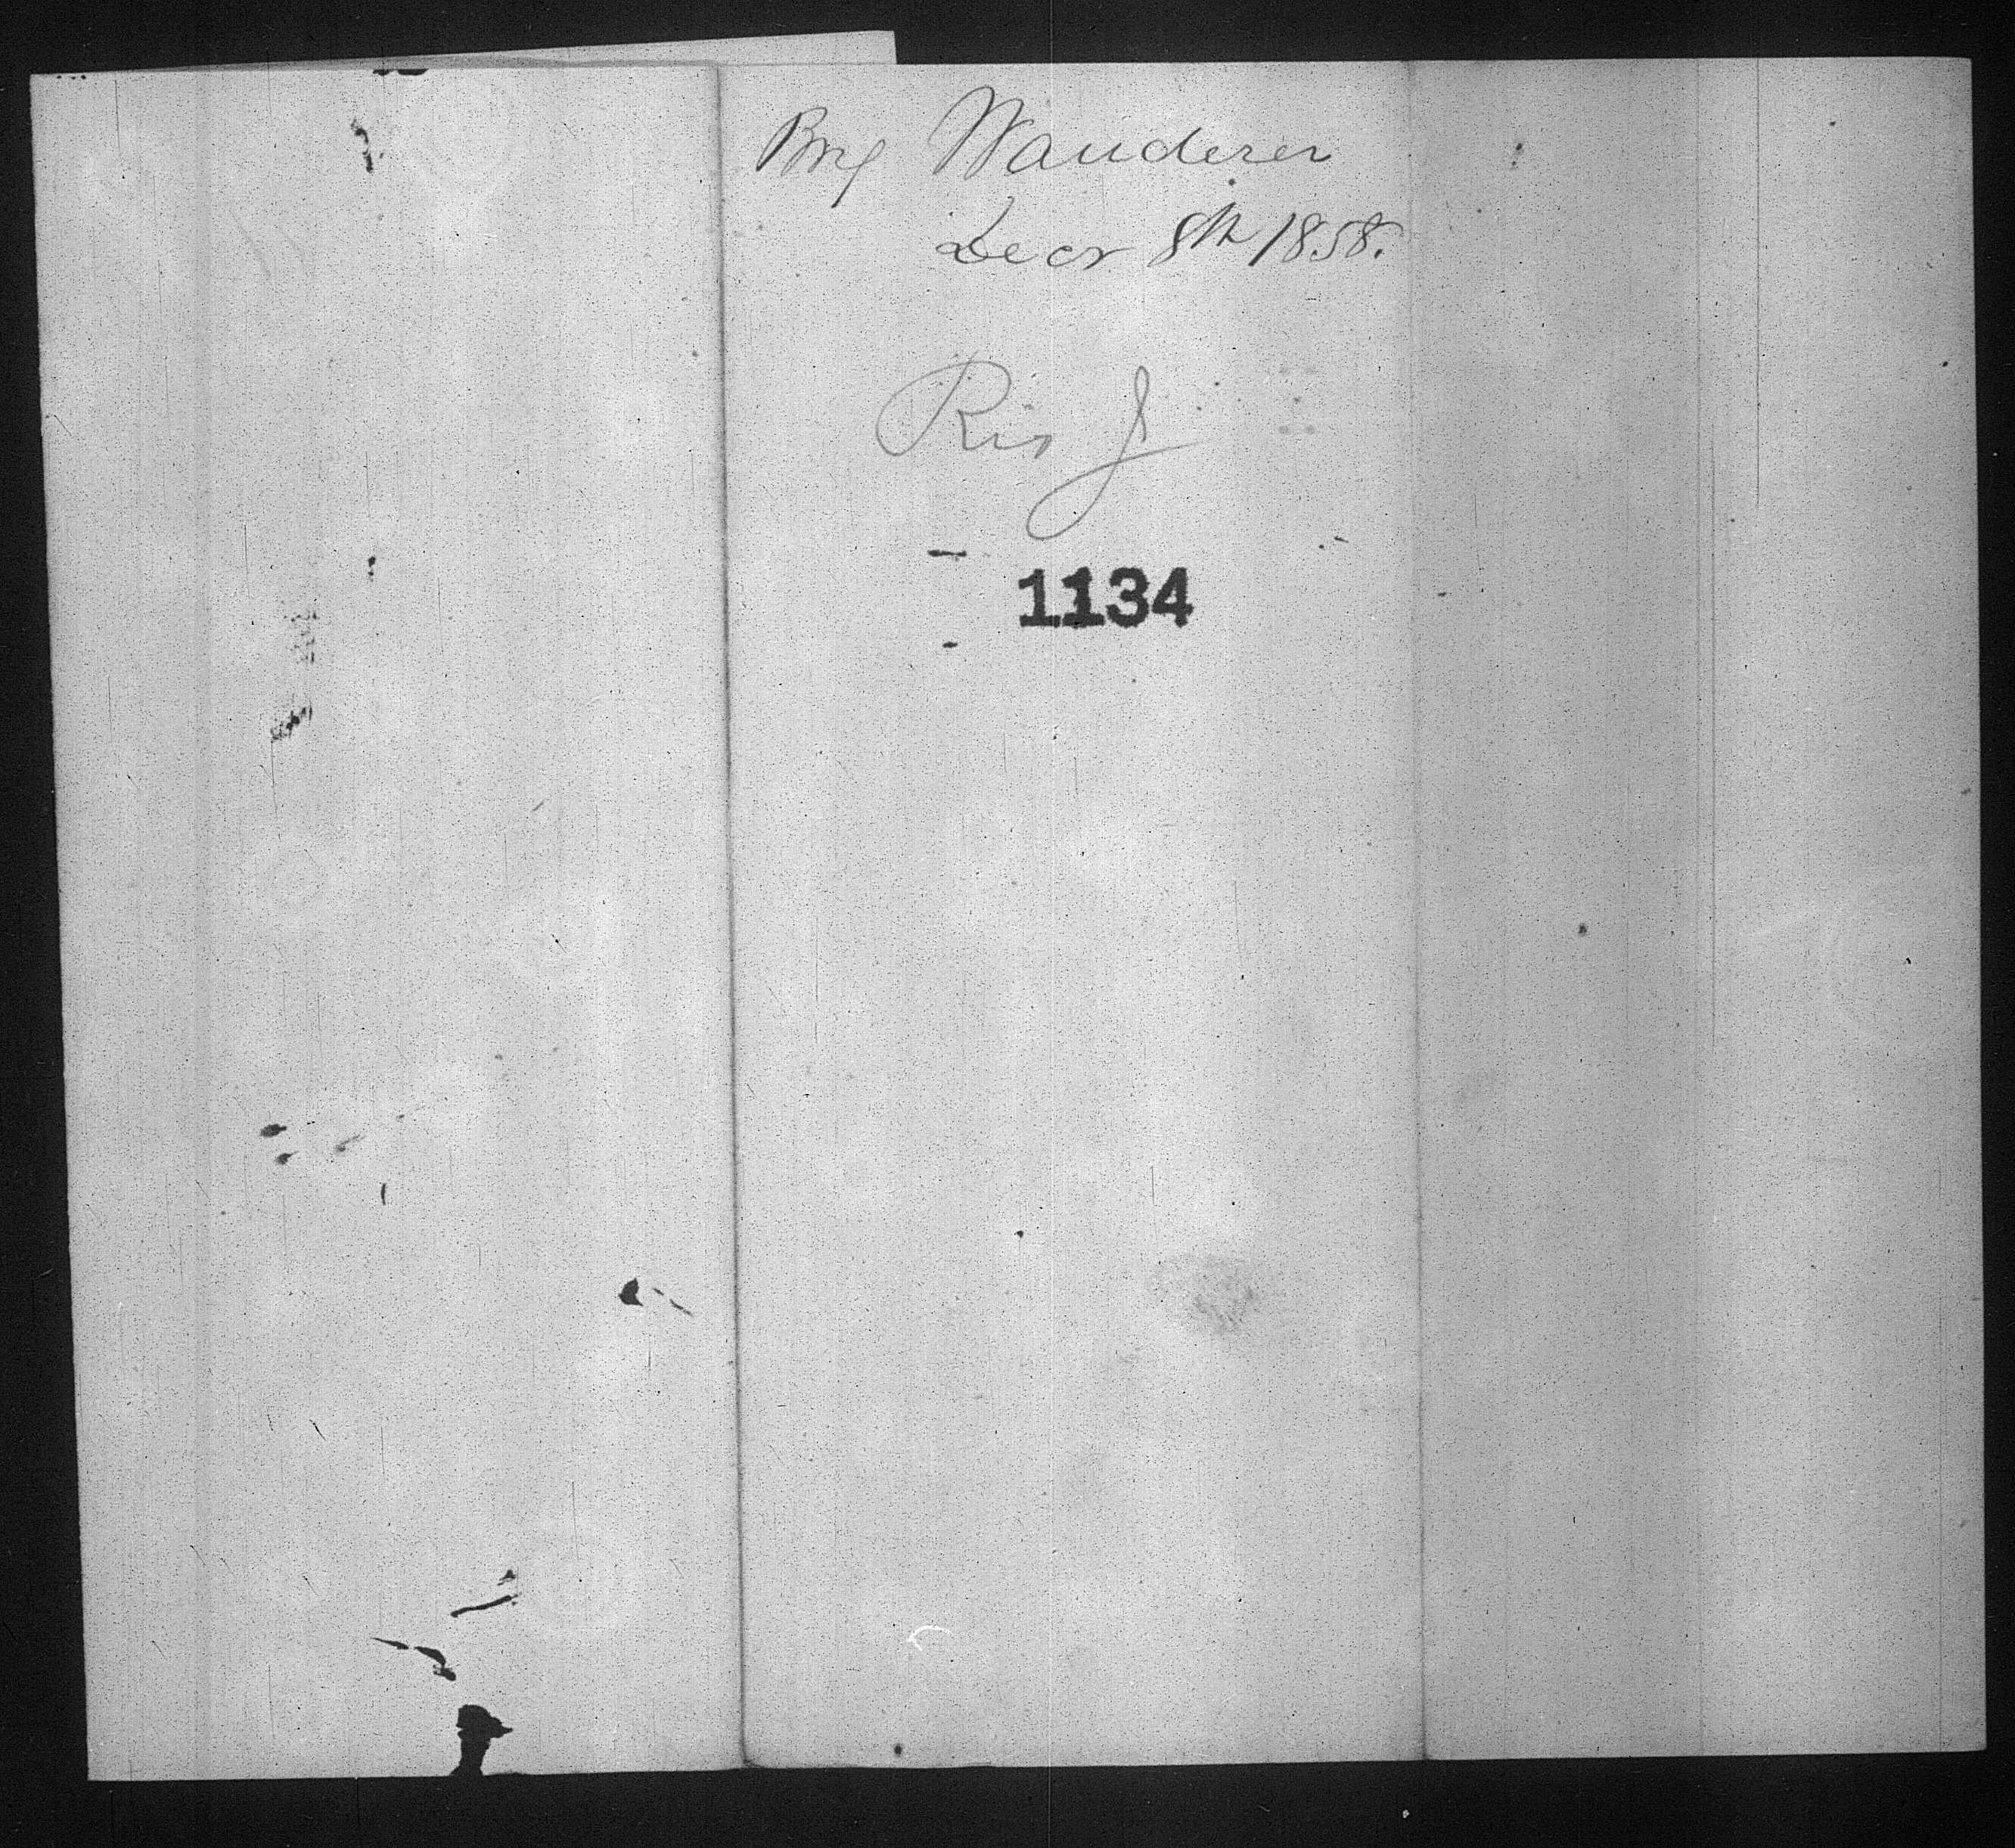 Brig Wanderer
Decr 8th 1858.
Rio J
1134